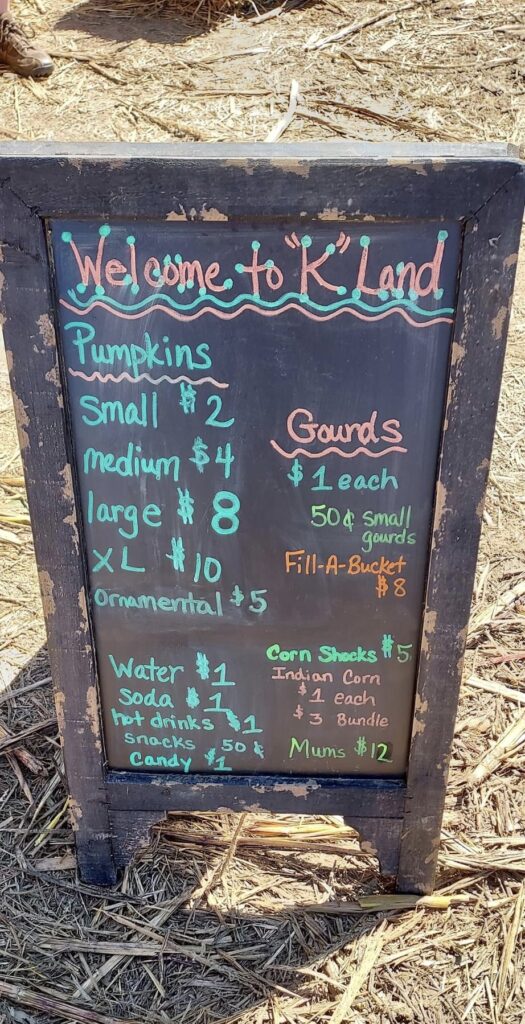 Welcome to "K" Land
Pumpkins
small $2
medium $4
large $8
XL $10
Ornamental $5
Gourds
$1 each
50¢ small
gourds
Fill-A-Bucket
$8
Water $1
soda $1
hot drinks $1
snacks 50¢
Candy $1
Corn Shocks $5
Indian Corn
$1 each
$3 Bundle
Mums $12